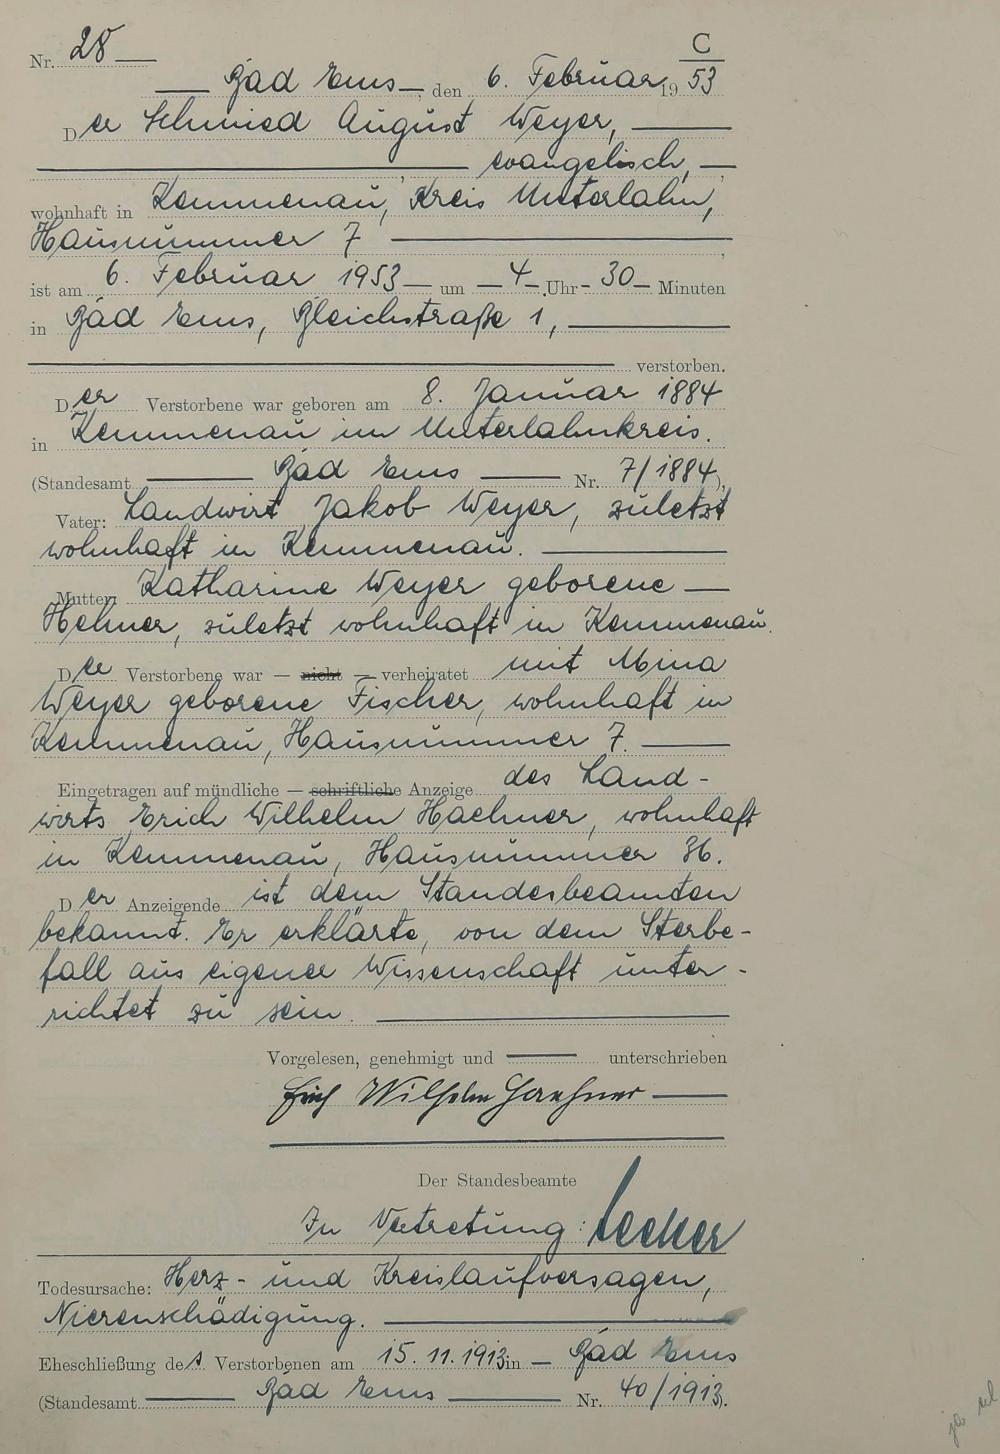 Nr. 28
C
Bad Ems, den 6. Februar 1953
Der Schmied August Weyer,
evangelisch,
wohnhaft in Kemmenau, Kreis Unterlahn,
Hausnummer 7
ist am 6. Februar 1953 um 4 Uhr 30 Minuten
in Bad Ems, Bleichstraße 1,
verstorben.
Der Verstorbene war geboren am 8. Januar 1884
in Kemmenau im Unterlahnkreis.
(Standesamt Bad Ems Nr. 7/1884),
Vater: Landwirt Jakob Weyer, zuletzt
wohnhaft in Kemmenau.
Mutter: Katharine Weyer geborene
Hehner, zuletzt wohnhaft in Kemmenau.
Der Verstorbene war — nicht — verheiratet mit Mina
Weyer geborene Fischer, wohnhaft in
Kemmenau, Hausnummer 7.
Eingetragen auf mündliche — schriftliche Anzeige des Land-
wirts Erich Wilhelm Haehner, wohnhaft
in Kemmenau, Hausnummer 36.
Der Anzeigende ist dem Standesbeamten
bekannt. Er erklärte, von dem Sterbe-
fall aus eigener Wissenschaft unter-
richtet zu sein.
Vorgelesen, genehmigt und unterschrieben
Erich Wilhelm Haehner
Der Standesbeamte
In Vertretung:
Todesursache: Herz- und Kreislaufversagen,
Nierenschädigung.
Eheschließung des Verstorbenen am 15.11.1913 in — Bad Ems
(Standesamt Bad Ems Nr. 40/1913).